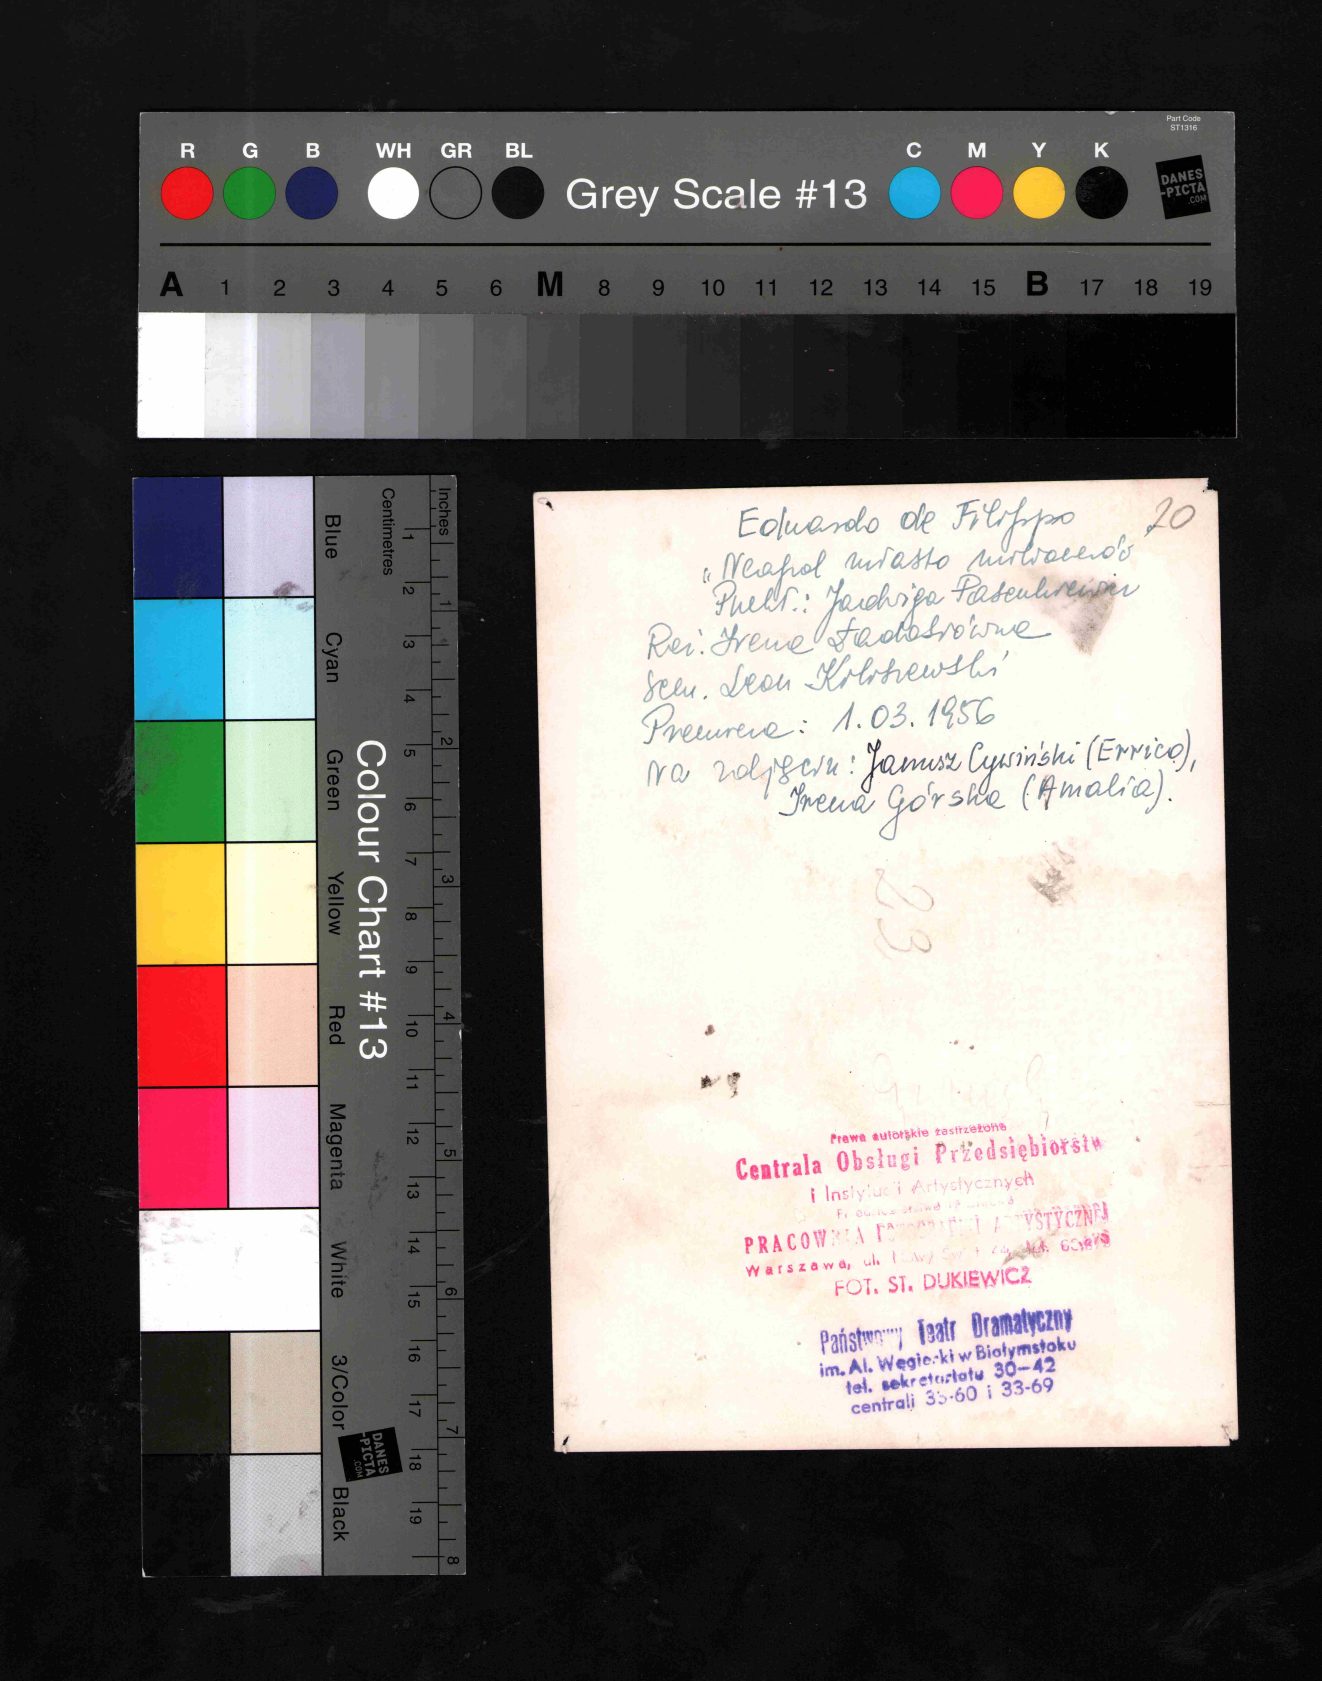 Part Code
ST1316
R G B WH GR BL Grey Scale #13 C M Y K
DANES
-PICTA
.COM
A 1 2 3 4 5 6 M 8 9 10 11 12 13 14 15 B 17 18 19
Colour Chart #13
Blue Cyan Green Yellow Red Magenta White 3/Color Black
Centimetres 1 2 3 4 5 6 7 8 9 10 11 12 13 14 15 16 17 18 19
Inches 1 2 3 4 5 6 7 8
DANES
-PICTA
.COM
20
Eduardo de Filippo
"Neapol miasto milionerów"
Jadwiga
Reż. Irena
Scen. Leon
Premiera: 1.03.1956
Na zdjęciu: Janusz Cywiński (Errico),
Irena Górska (Amalia).
23
Prawa autorskie zastrzeżone
Centrala Obsługi Przedsiębiorstw
i Instytucji Artystycznych
PRACOWNIA ARTYSTYCZNEJ
Warszawa, ul.
FOT. ST. DUKIEWICZ
Państwowy Teatr Dramatyczny
im. Al. Węgierki w Białymstoku
tel. sekretariatu 30-42
centrali 33-60 i 33-69